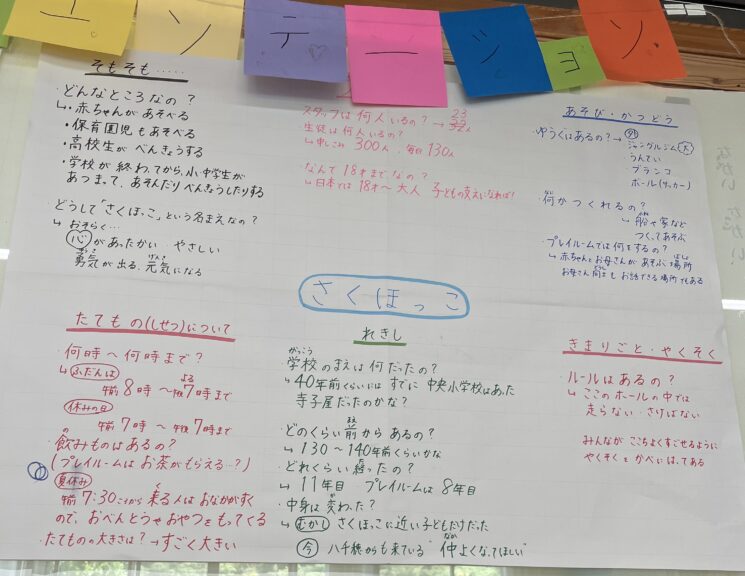 エンテーションソ
そもそも……
・どんなところなの？
↳・赤ちゃんがあそべる
・保育園児もあそべる
・高校生がべんきょうする
・学校が終わってから、小中学生が
あつまって、あそんだりべんきょうしたりする
どうして「さくほっこ」という名まえなの？
↳おそらく…
心があったかい やさしい
勇気が出る、元気になる
・スタッフは何人いるの？→
・生徒は何人いるの？
↳申しこみ 300人、毎日130人
・なんで18才までなの？
↳日本では18才～大人 子どもの支えになれば！
あそび・かつどう
・ゆうぐはあるの？→外
ジャングルジム(大)
うんてい
ブランコ
ボール(サッカー)
・何かつくれるの？
↳船や家など
つくってあそぶ
・プレイルームでは何をするの？
↳赤ちゃんとお母さんがあそぶ場所
お母さん同士もお話できる場所でもある
さくほっこ
たてもの(しせつ)について
・何時～何時まで？
↳ふだんは
午前8時～午後7時まで
休みの日
午前7時～午後7時まで
・飲みものはあるの？
(プレイルームはお茶がもらえる…？)
夏休み
午前7:30ごろから来る人はおなかがすく
ので、おべんとうやおやつをもってくる
・たてものの大きさは？→すごく大きい
れきし
・学校のまえは何だったの？
↳40年前くらいにはすでに中央小学校はあった
寺子屋だったのかな？
・どのくらい前からあるの？
↳130～140年前くらいかな
・どれくらい経ったの？
↳11年目 プレイルームは8年目
・中身は変わった？
↳むかし さくほっこに近い子どもだけだった
今 八千穂からも来ている "仲よくなってほしい"
きまりごと・やくそく
・ルールはあるの？
↳ここのホールの中では
走らない・さけばない
みんながここちよくすごせるように
やくそくとかべにはってある